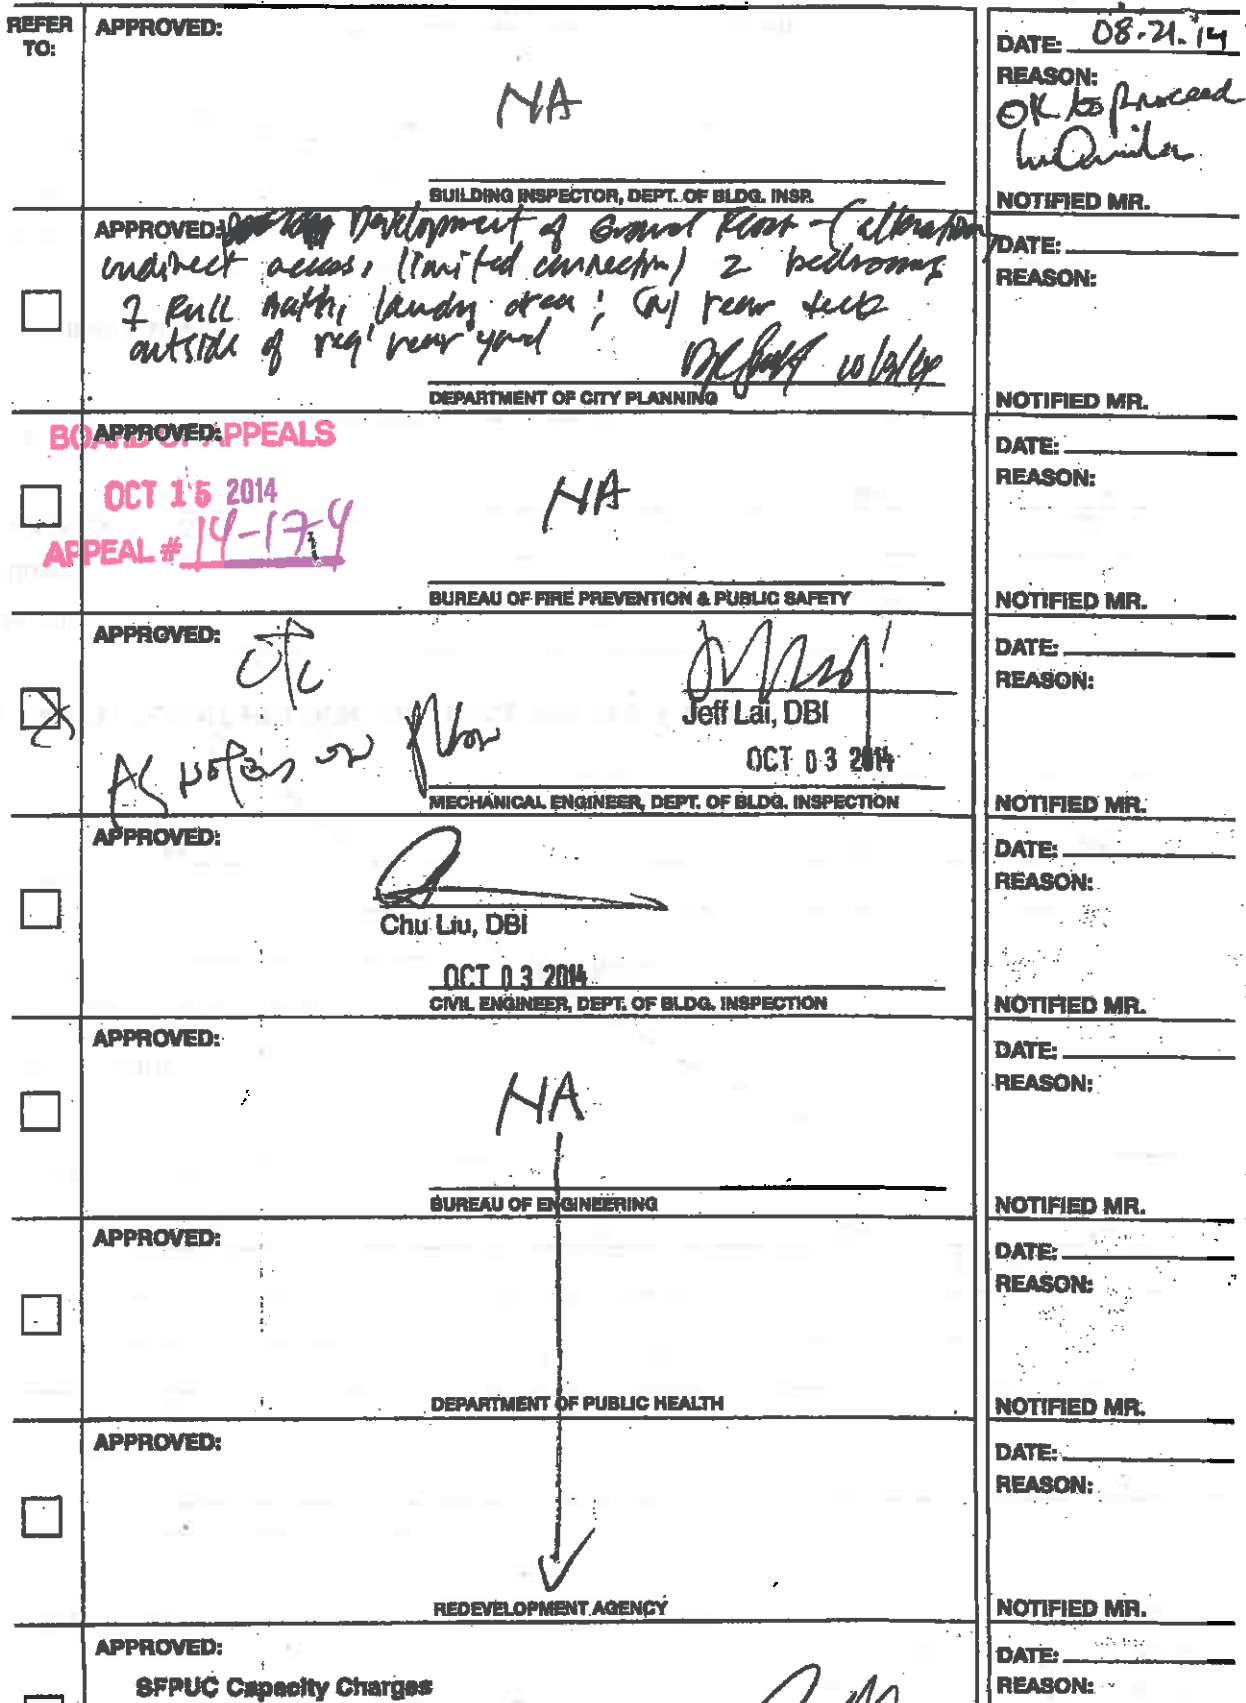 REFER TO:
APPROVED:
NA
BUILDING INSPECTOR, DEPT. OF BLDG. INSP.
DATE: 08-21-14
REASON:
OK to proceed
NOTIFIED MR.
APPROVED: Development of Ground Floor - (alteration
indirect access, limited connection) 2 bedrooms
full bath, laundry area; (N) rear deck
outside of req' rear yard
DEPARTMENT OF CITY PLANNING
DATE:
REASON:
NOTIFIED MR.
APPROVED:
BOARD OF APPEALS
OCT 15 2014
APPEAL # 14-174
NA
BUREAU OF FIRE PREVENTION & PUBLIC SAFETY
DATE:
REASON:
NOTIFIED MR.
APPROVED:
OTC
As notes on plan
Jeff Lai, DBI
OCT 03 2014
MECHANICAL ENGINEER, DEPT. OF BLDG. INSPECTION
DATE:
REASON:
NOTIFIED MR.
APPROVED:
Chu Liu, DBI
OCT 03 2014
CIVIL ENGINEER, DEPT. OF BLDG. INSPECTION
DATE:
REASON:
NOTIFIED MR.
APPROVED:
NA
BUREAU OF ENGINEERING
DATE:
REASON:
NOTIFIED MR.
APPROVED:
DEPARTMENT OF PUBLIC HEALTH
DATE:
REASON:
NOTIFIED MR.
APPROVED:
REDEVELOPMENT AGENCY
DATE:
REASON:
NOTIFIED MR.
APPROVED:
SFPUC Capacity Charges
DATE:
REASON: